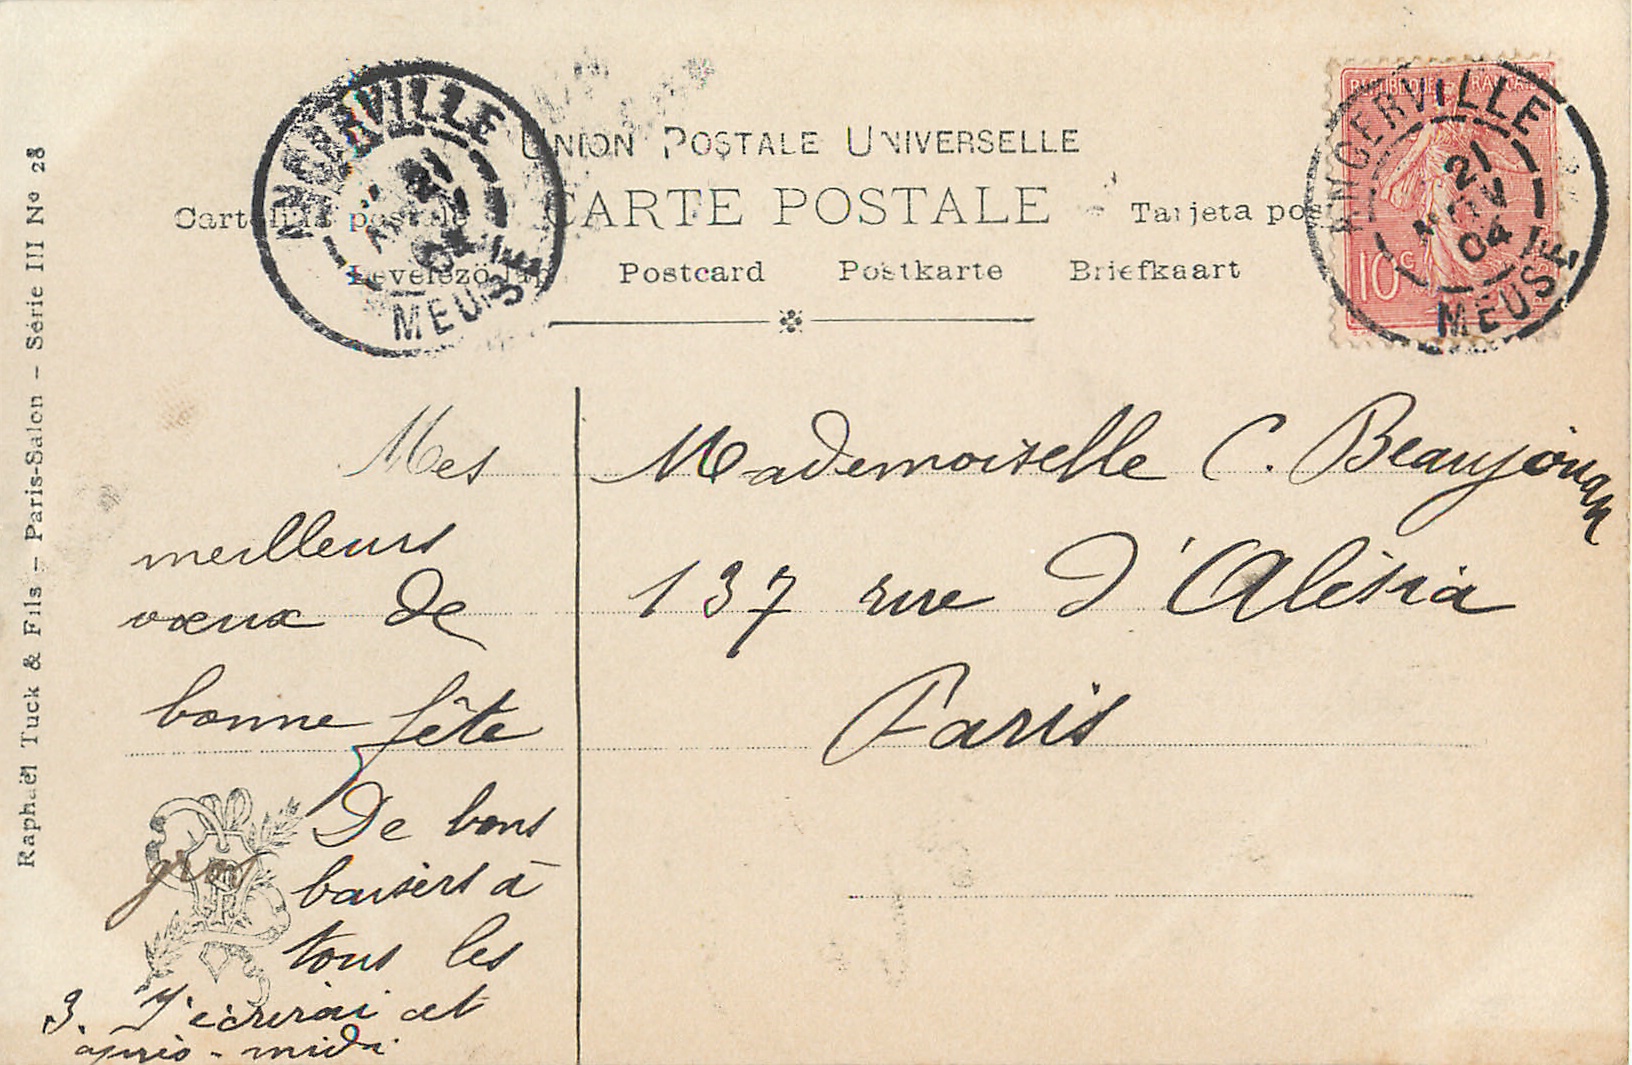 UNION POSTALE UNIVERSELLE
CARTE POSTALE
Cartolina postale
Tarjeta pos
Levelezö lap Postcard Postkarte Briefkaart
ANGERVILLE
21
NOV
04
MEUSE
ANGERVILLE
21
NOV
04
MEUSE
REPUBLIQUE FRANÇAISE
10c
Raphaël Tuck & Fils – Paris-Salon – Série III Nº 28
Mes
meilleurs
vœux de
bonne fête
De bons
gros baisers à
tous les
3. J'écrirai cet
après-midi
Mademoiselle C. Beaujouan
137 rue d'Alésia
Paris